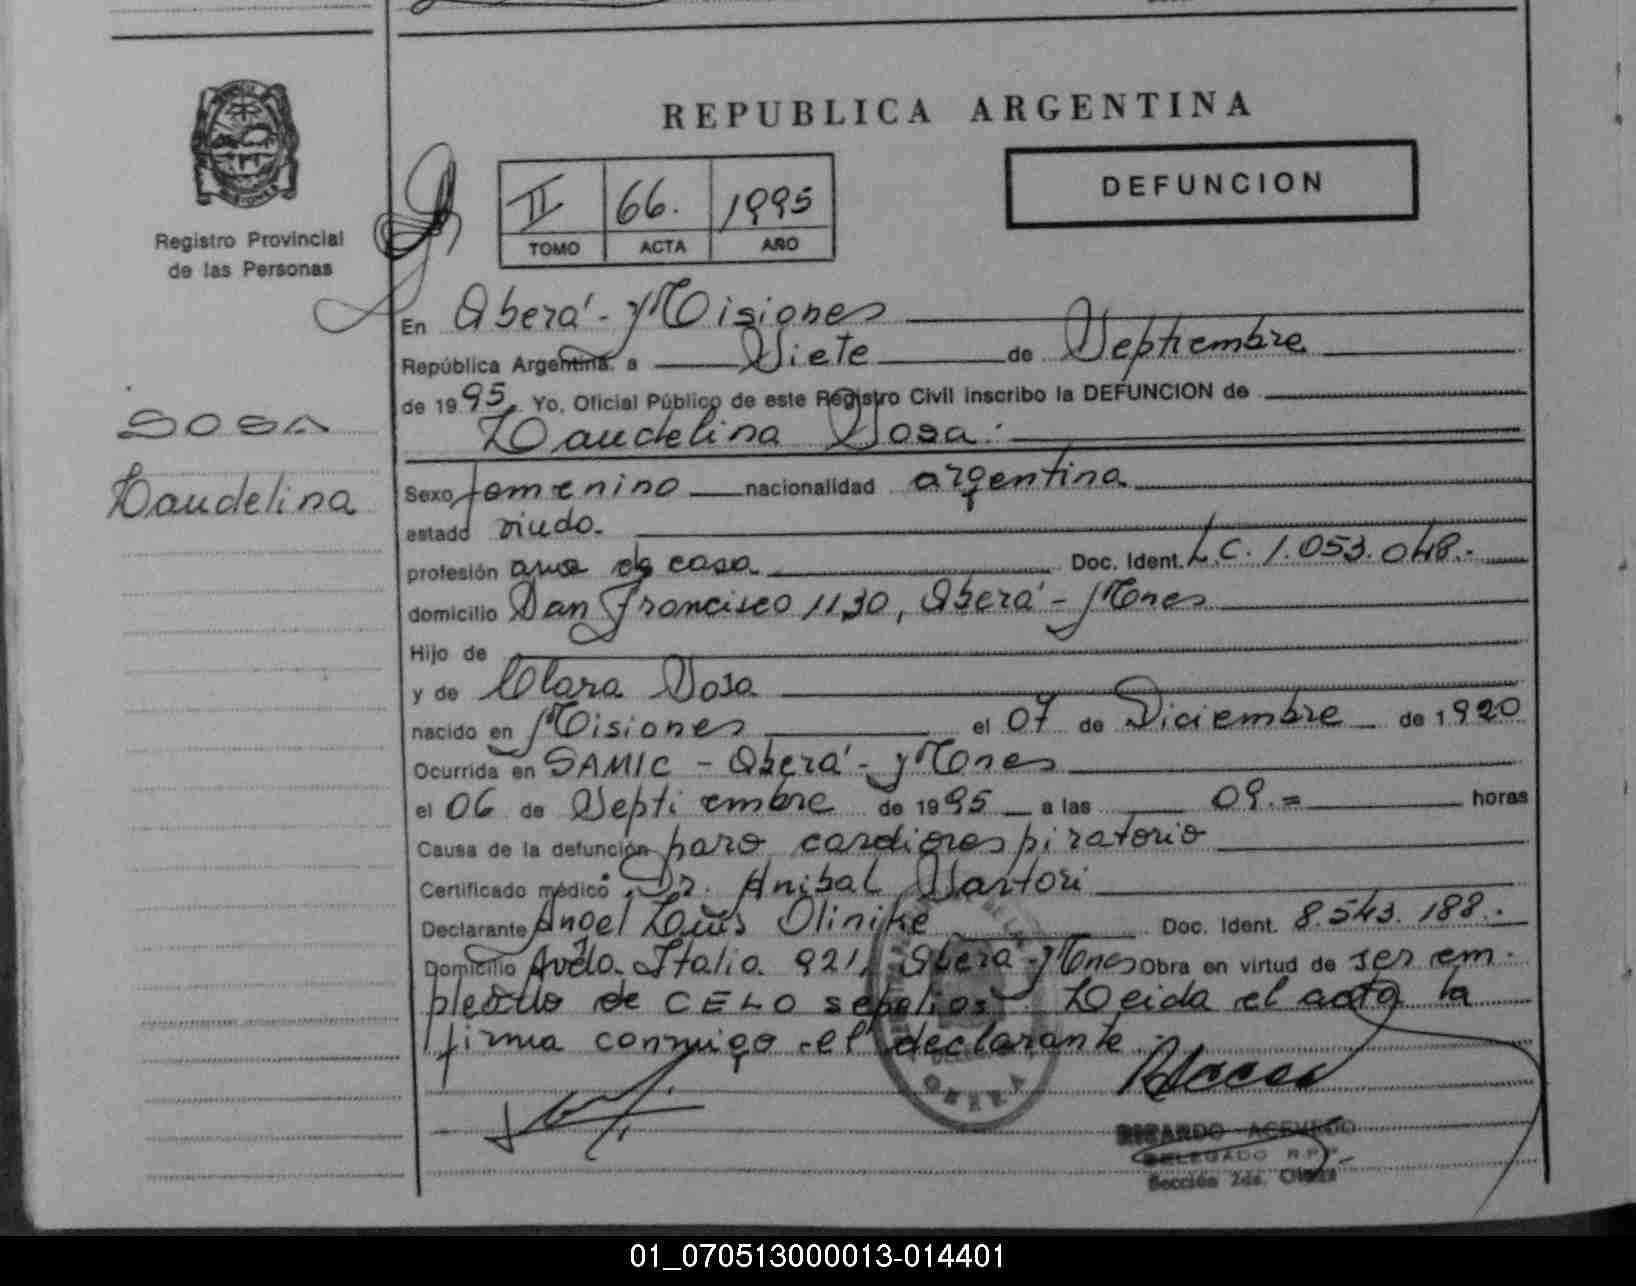 REPUBLICA ARGENTINA
DEFUNCION
II 66. 1995
TOMO ACTA AÑO
Registro Provincial
de las Personas
En Oberá - Misiones
República Argentina, a Siete de Septiembre
de 1995. Yo, Oficial Público de este Registro Civil inscribo la DEFUNCION de
Laudelina Sosa.
SOSA
Laudelina
Sexo femenino nacionalidad argentina
estado viudo.
profesión ama de casa Doc. Ident. L.C. 1.053.048.-
domicilio San Francisco 1130, Oberá - Mnes
Hijo de
y de Clara Sosa
nacido en Misiones el 07 de Diciembre de 1920
Ocurrida en SAMIC - Oberá - Mnes
el 06 de Septiembre de 1995 a las 09.= horas
Causa de la defunción paro cardiorespiratorio
Certificado médico Dr. Anibal Sartori
Declarante Angel Luis Olinike Doc. Ident. 8.543.188.-
Domicilio Avda. Italia 921, Oberá - Mnes Obra en virtud de ser em-
pleado de CELO sepelios. Leida el acta la
firma conmigo el declarante.
OBERA
RICARDO ACEVEDO
DELEGADO R.P.P.
Sección 2da. Oberá
01_070513000013-014401